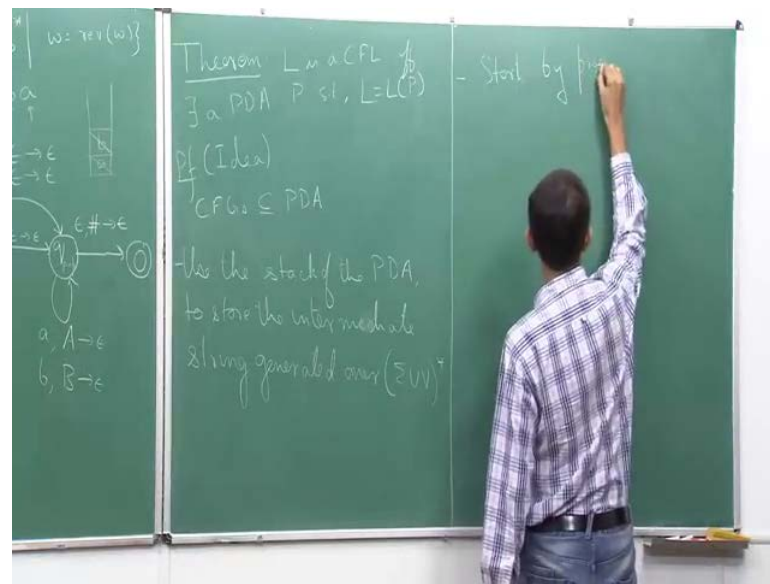 w = rev(w)}
a
ε → ε
ε, # → ε
a, A → ε
b, B → ε
Theorem L is a CFL iff
∃ a PDA P s.t. L = L(P)
Pf (Idea)
CFGs ⊆ PDA
- Use the stack of the PDA,
to store the intermediate
string generated over (Σ∪V)*
- Start by